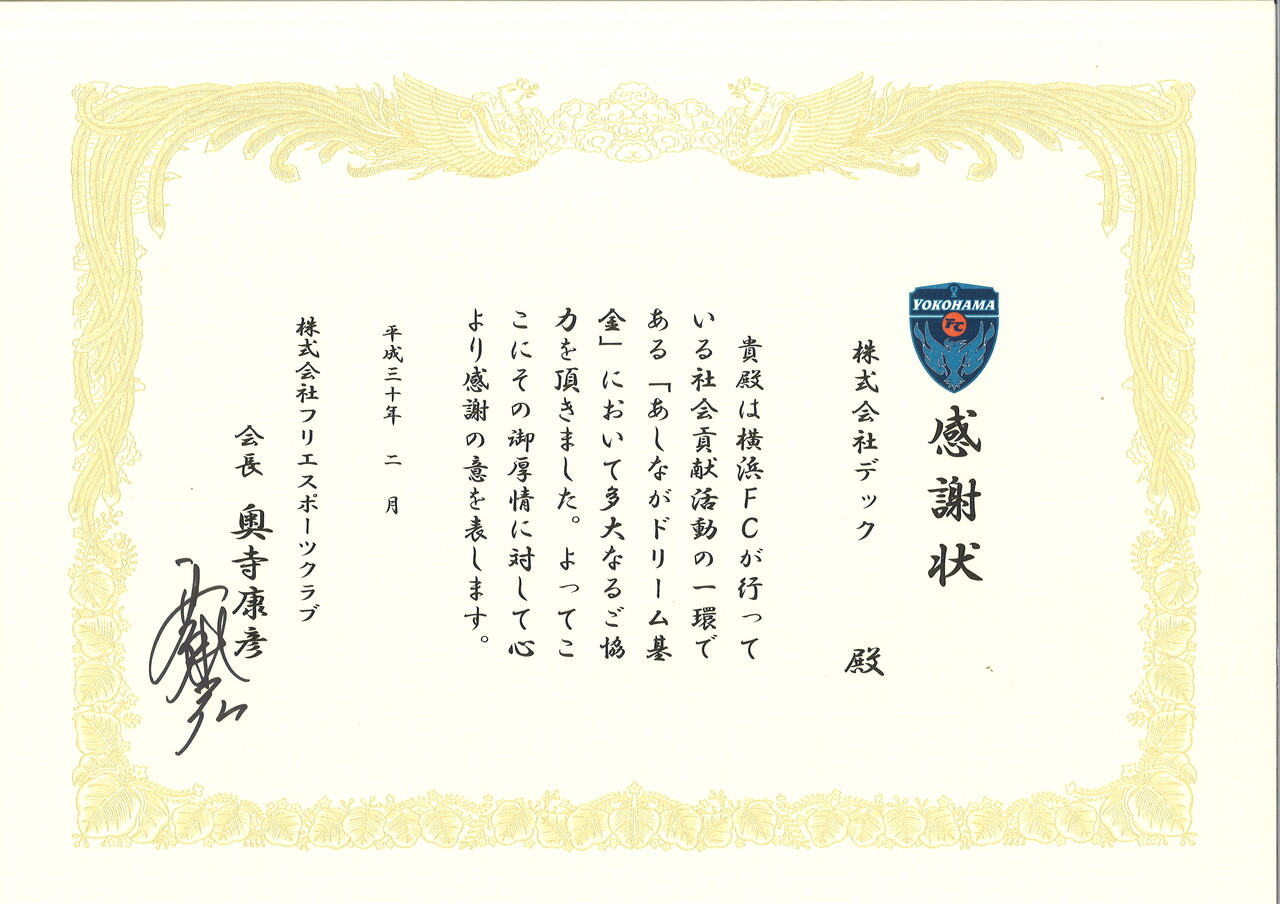 YOKOHAMA
FC
感謝状
株式会社デック 殿
貴殿は横浜FCが行って
いる社会貢献活動の一環で
ある「あしながドリーム基
金」において多大なるご協
力を頂きました。よってこ
こにその御厚情に対して心
より感謝の意を表します。
平成三十年 二月
株式会社フリエスポーツクラブ
会長 奥寺康彦